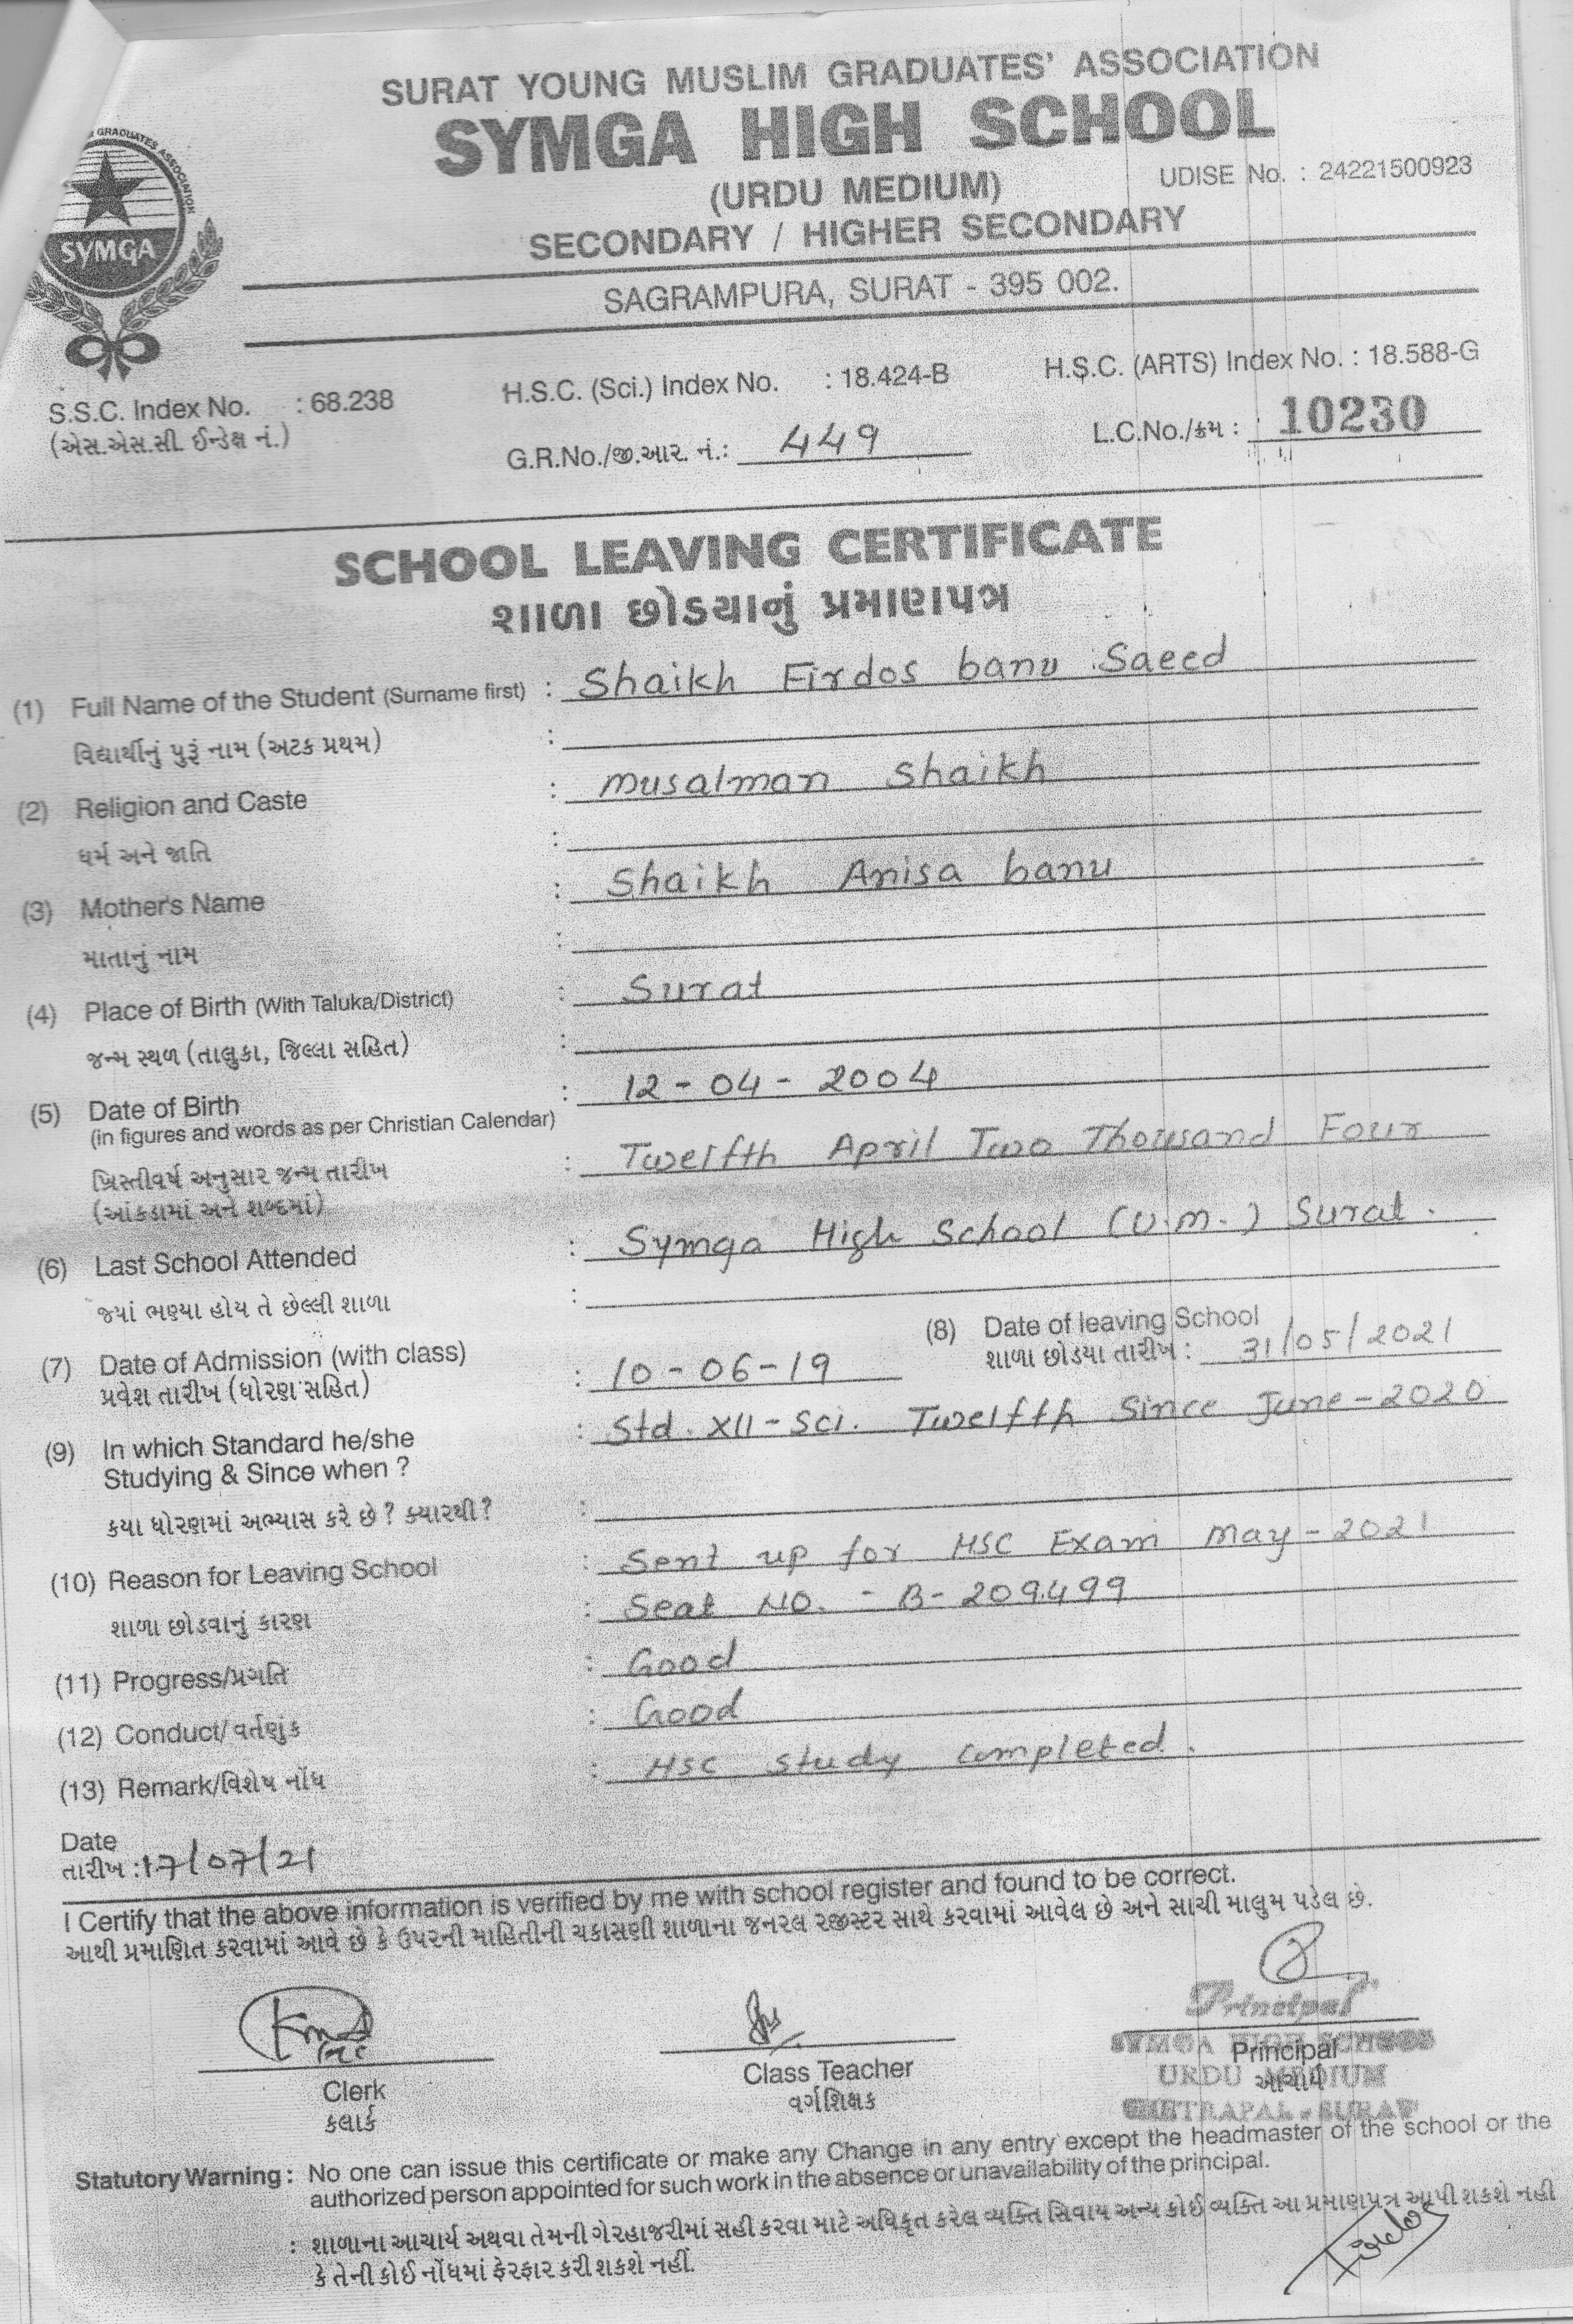 SURAT YOUNG MUSLIM GRADUATES' ASSOCIATION
SYMGA HIGH SCHOOL
(URDU MEDIUM)
UDISE No. : 24221500923
SECONDARY / HIGHER SECONDARY
SAGRAMPURA, SURAT - 395 002.
GRADUATES ASSOCIATION
SYMGA
S.S.C. Index No. : 68.238
(એસ.એસ.સી. ઈન્ડેક્ષ નં.)
H.S.C. (Sci.) Index No. : 18.424-B
H.S.C. (ARTS) Index No. : 18.588-G
G.R.No./જી.આર. નં.: 449
L.C.No./ક્રમ : 10230
SCHOOL LEAVING CERTIFICATE
શાળા છોડયાનું પ્રમાણપત્ર
(1) Full Name of the Student (Surname first) : Shaikh Firdos banu Saeed
વિદ્યાર્થીનું પુરૂં નામ (અટક પ્રથમ) :
(2) Religion and Caste : musalman shaikh
ધર્મ અને જાતિ :
(3) Mother's Name : Shaikh Anisa banu
માતાનું નામ :
(4) Place of Birth (With Taluka/District) : Surat
જન્મ સ્થળ (તાલુકા, જિલ્લા સહિત) :
(5) Date of Birth : 12-04-2004
(in figures and words as per Christian Calendar)
ખ્રિસ્તીવર્ષ અનુસાર જન્મ તારીખ : Twelfth April Two Thousand Four
(આંકડામાં અને શબ્દમાં)
(6) Last School Attended : Symga High School (U.M.) Surat.
જ્યાં ભણ્યા હોય તે છેલ્લી શાળા :
(7) Date of Admission (with class) : 10-06-19
પ્રવેશ તારીખ (ધોરણ સહિત)
(8) Date of leaving School
શાળા છોડયા તારીખ : 31/05/2021
(9) In which Standard he/she : Std. XII-Sci. Twelfth Since June-2020
Studying & Since when ?
કયા ધોરણમાં અભ્યાસ કરે છે? ક્યારથી? :
(10) Reason for Leaving School : Sent up for HSC Exam May-2021
શાળા છોડવાનું કારણ : Seat NO. - B-209499
(11) Progress/પ્રગતિ : Good
(12) Conduct/વર્તણુંક : Good
(13) Remark/વિશેષ નોંધ : HSC study completed.
Date
તારીખ : 17/07/21
I Certify that the above information is verified by me with school register and found to be correct.
આથી પ્રમાણિત કરવામાં આવે છે કે ઉપરની માહિતીની ચકાસણી શાળાના જનરલ રજીસ્ટર સાથે કરવામાં આવેલ છે અને સાચી માલુમ પડેલ છે.
Clerk
કલાર્ક
Class Teacher
વર્ગશિક્ષક
Principal
SYMGA HIGH SCHOOL
Principal
URDU MEDIUM
આચાર્ય
CHETRAPAL - SURAT
Statutory Warning : No one can issue this certificate or make any Change in any entry except the headmaster of the school or the
authorized person appointed for such work in the absence or unavailability of the principal.
: શાળાના આચાર્ય અથવા તેમની ગેરહાજરીમાં સહી કરવા માટે અધિકૃત કરેલ વ્યક્તિ સિવાય અન્ય કોઈ વ્યક્તિ આ પ્રમાણપત્ર આપી શકશે નહીં
કે તેની કોઈ નોંધમાં ફેરફાર કરી શકશે નહીં.
Firdos